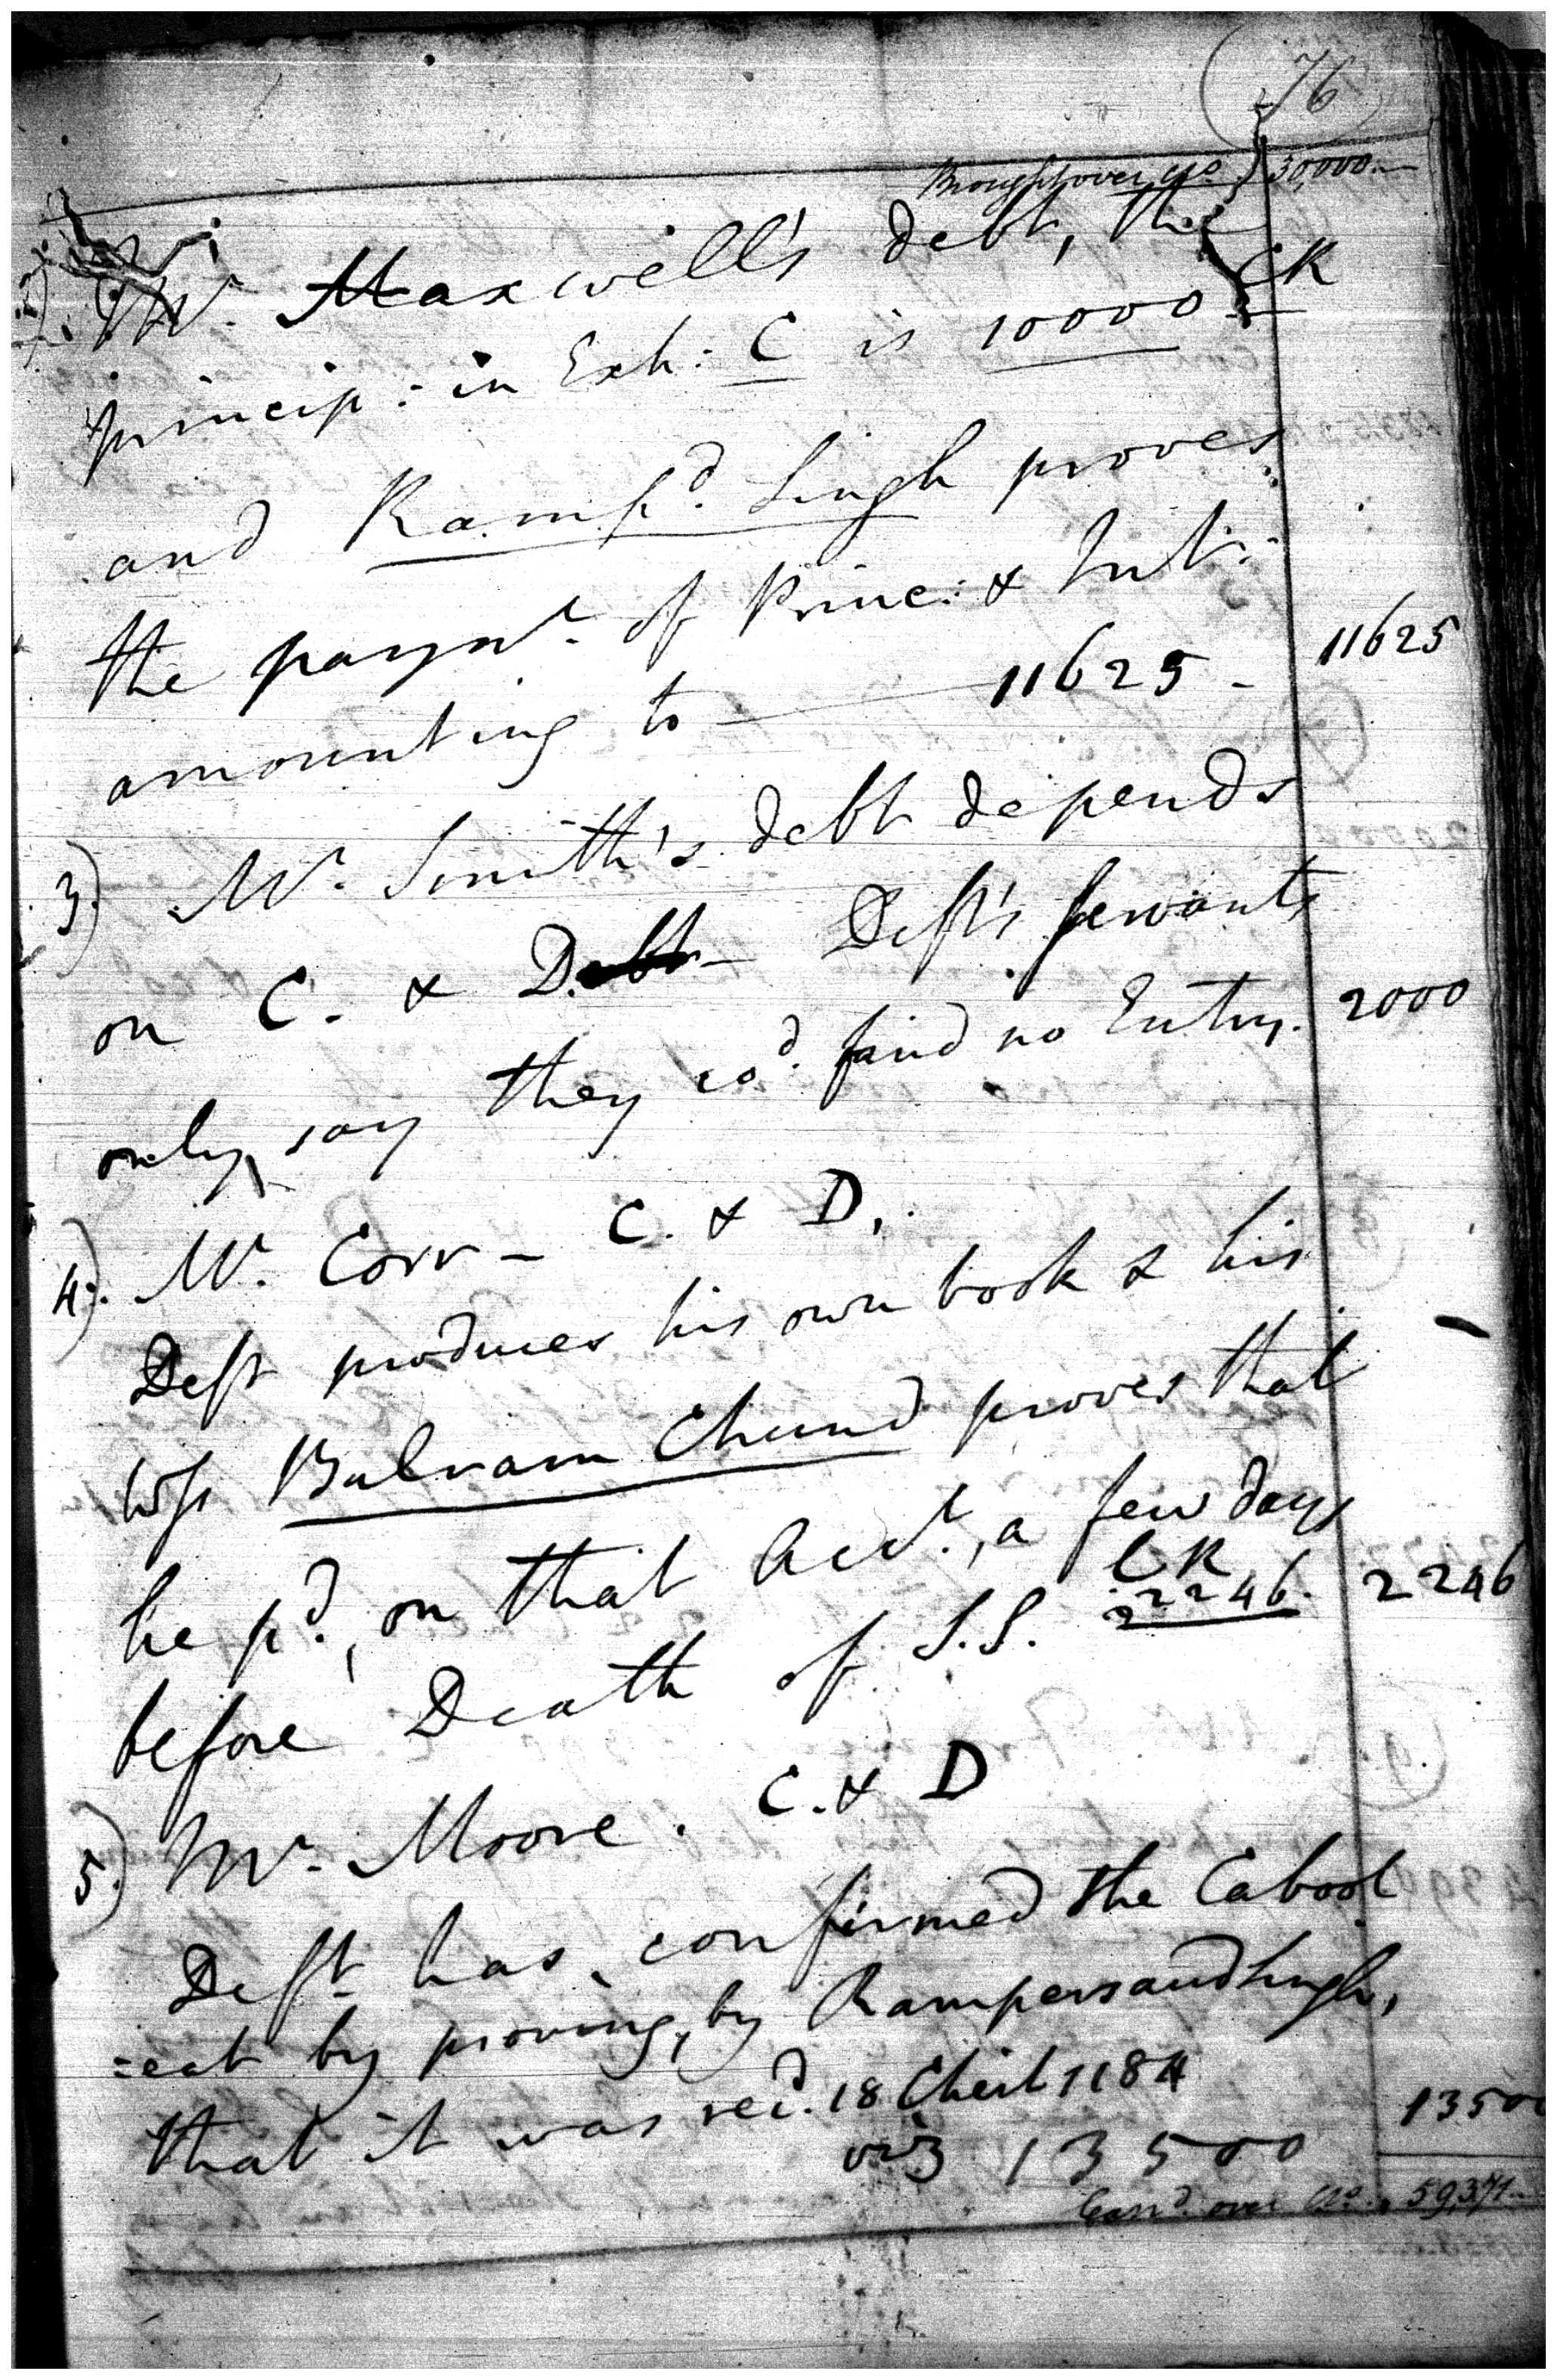 76
Brought over 30,000.—
2) Mr. Maxwell's debt, the
princip: in Exh: C is 10000 CR
and Rampd. Singh proves
the paymt. of Princ: & Int:
amounting to — 11625 - 11625
3) Mr. Smith's debt depends
on C. & D. Deft's servants
only say they cod. find no Entry. 2000
4). Mr. Corr — C. & D.
Deft produces his own book & his
Wss Bulram Chund proves that
he pd., on that Acct., a few days
before Death of S.S. CR 2246. 2246
5.) Mr. Moore. C. & D
Deft has confirmed the Cabool
=eat by proving, by Rampersaud Singh,
that it was recd. 18 Cheit 1184
viz 13500 13500
Carrd. over 59,371—